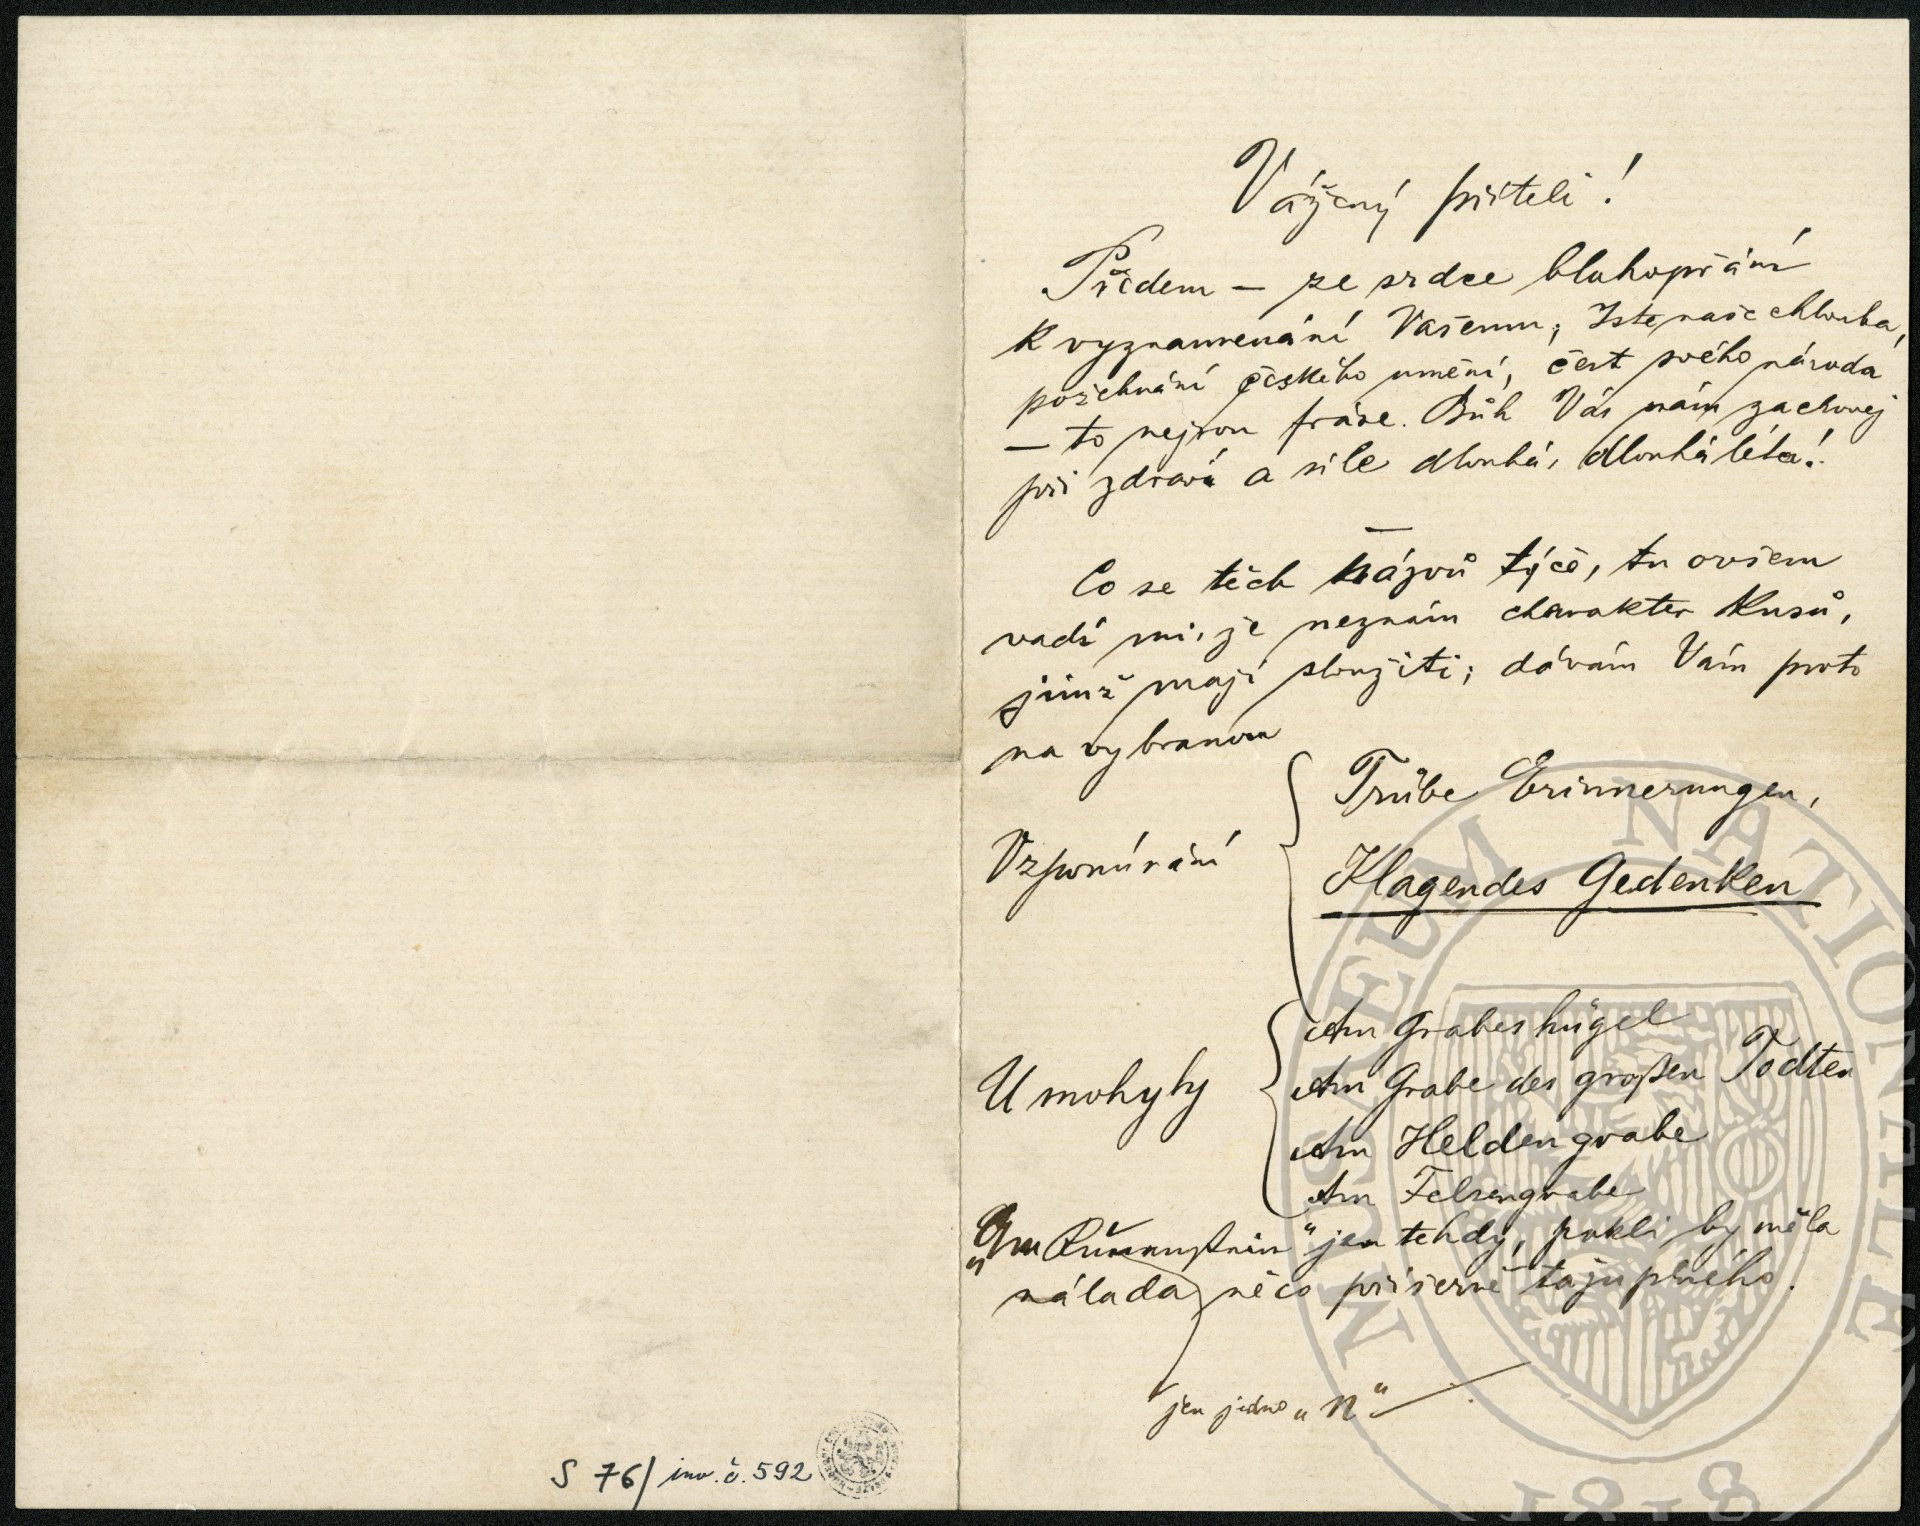 Vážený příteli!
Předem – ze srdce blahopřání
k vyznamenání Vašemu; Jste naše chlouba,
požehnání českého umění, čest svého národa
– to nejsou fráse. Bůh Vás nám zachovej
při zdraví a síle dlouhá, dlouhá léta!
Co se těch názvů týče, tu ovšem
vadí mi, že neznám charakter kusů,
jimž mají sloužiti; dávám Vám proto
na vybranou
Vzpomínání
Trübe Erinnerungen,
Klagendes Gedenken
U mohyly
Am Grabeshügel
Am Grabe des großen Todten
Am Heldengrabe
Am Felsengrabe
„Am “ jen tehdy, pakli by měla
nálada něco příšerně tajuplného.
jen jedno „n“
S 76/ inv. č. 592
MUSAEUM NATIONALE
1818